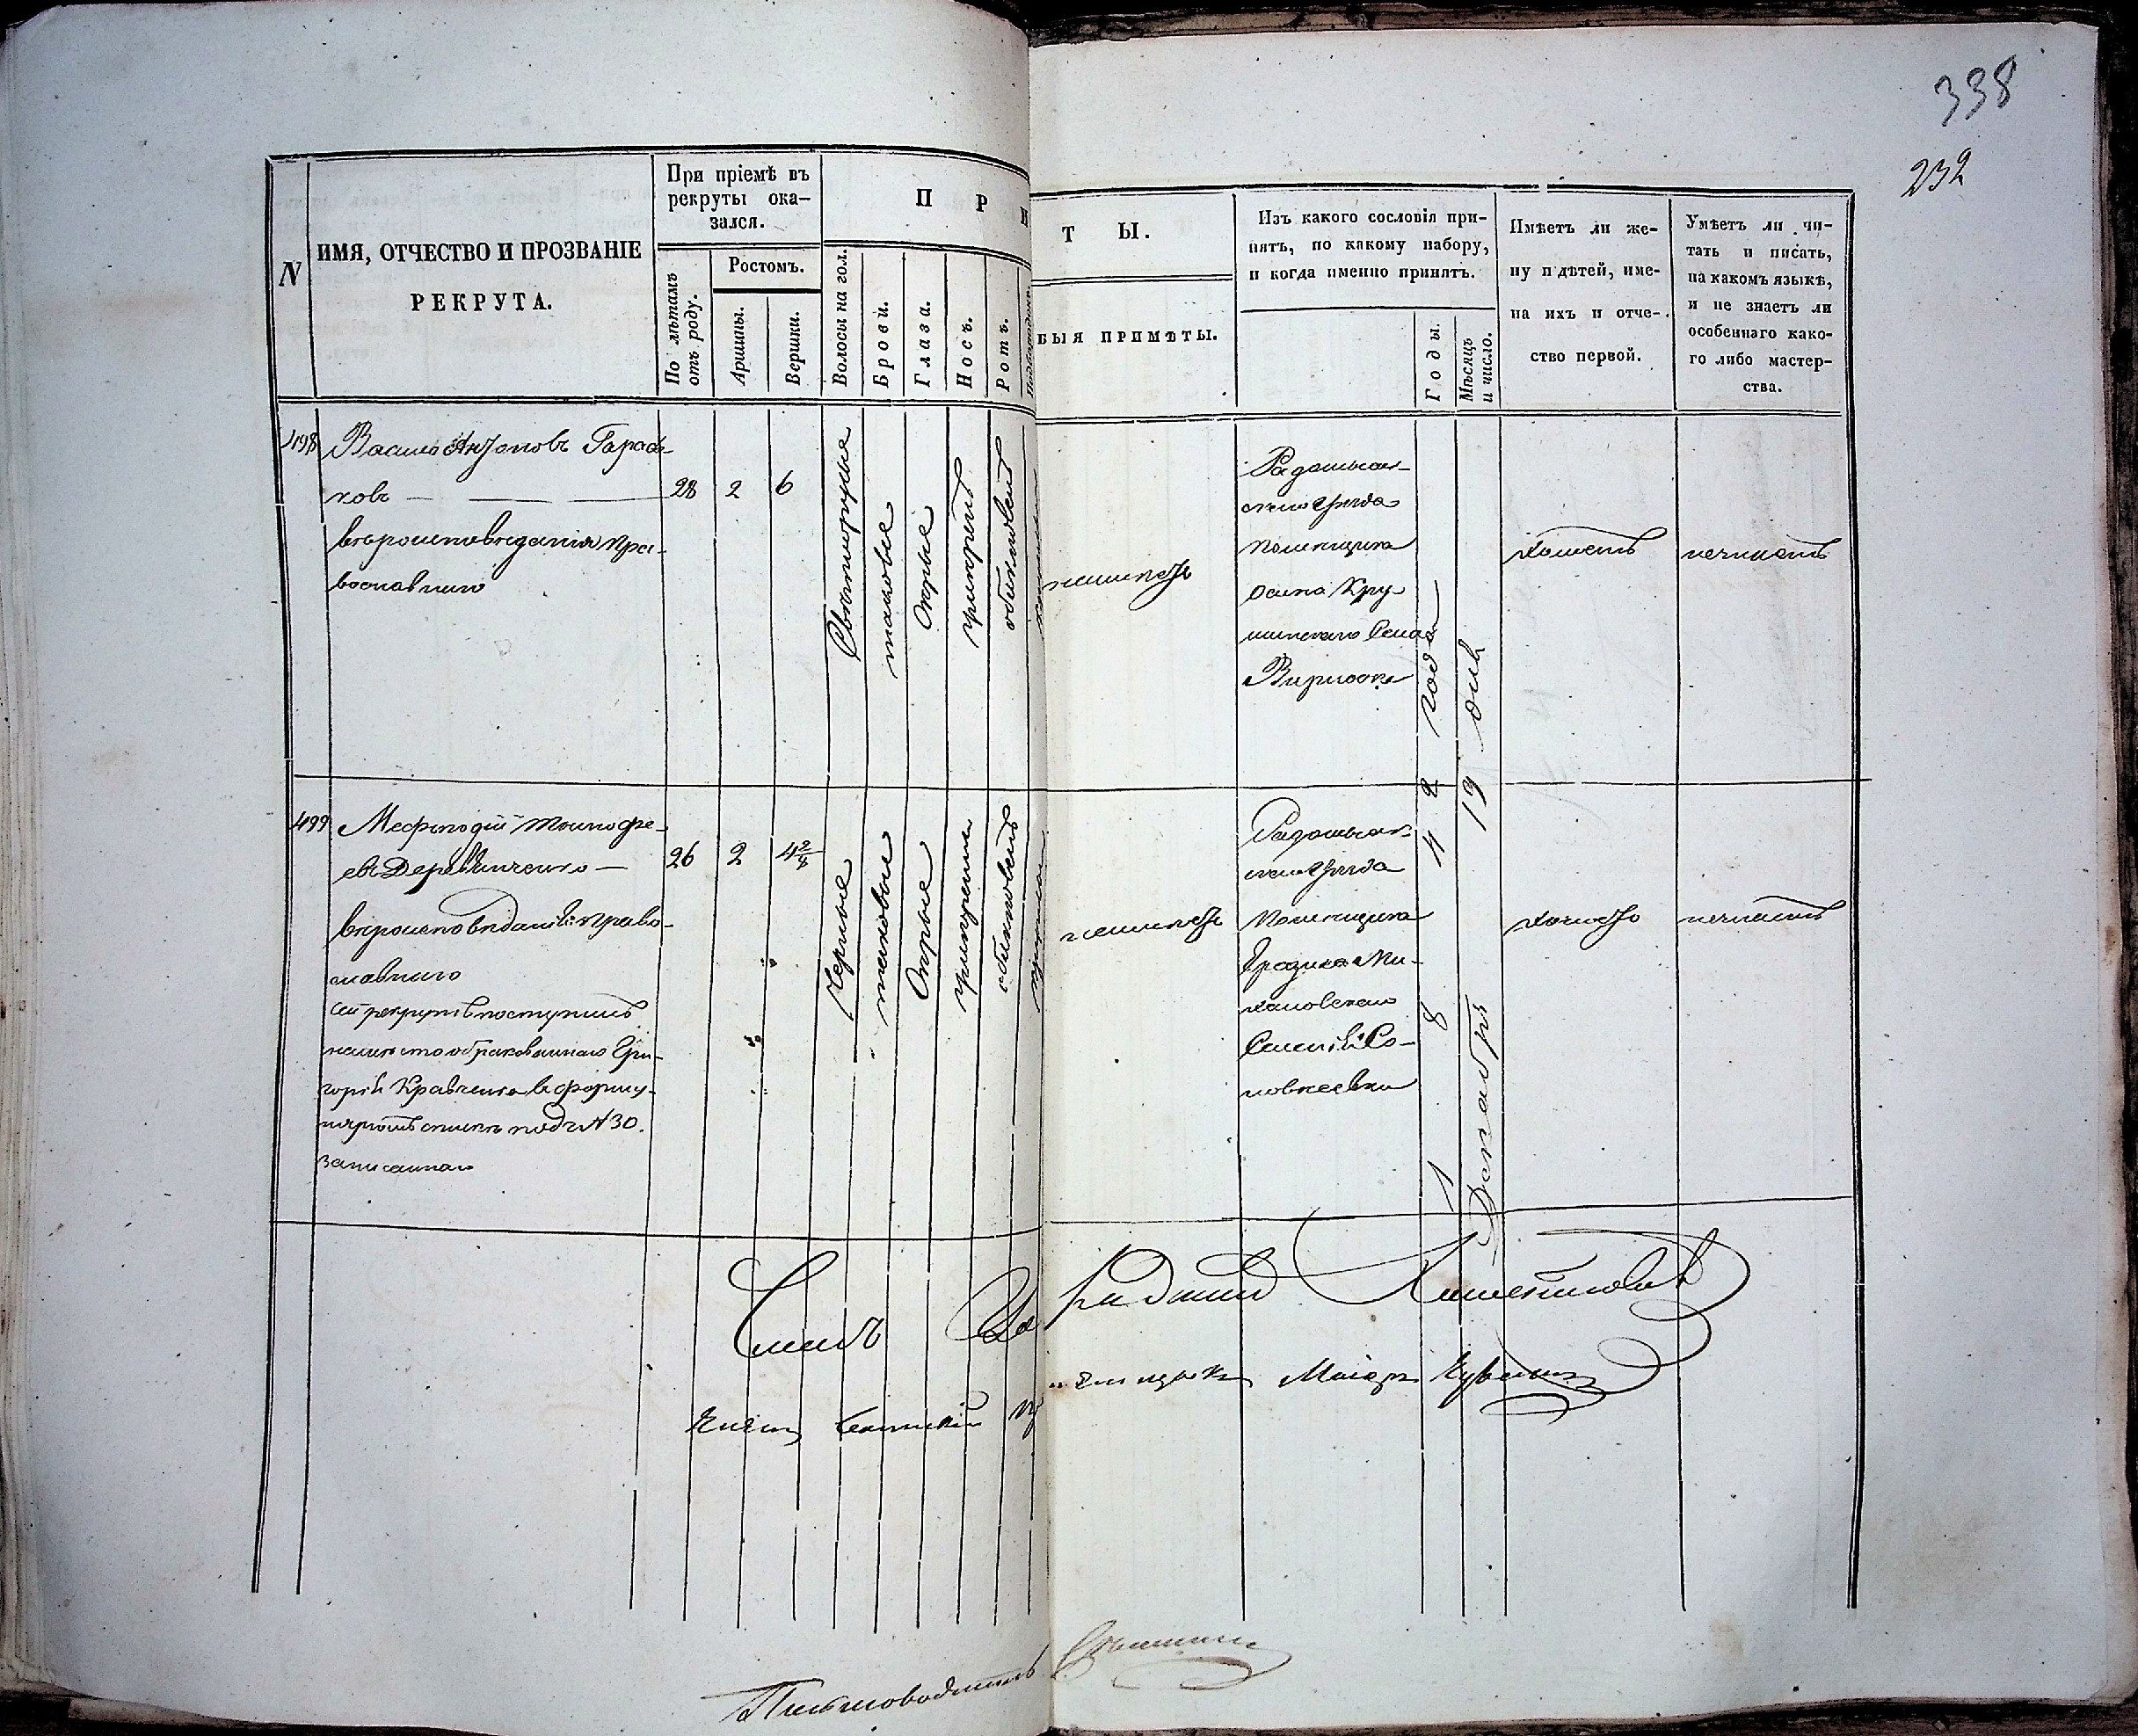 338
232
N
ИМЯ, ОТЧЕСТВО И ПРОЗВАНІЕ
РЕКРУТА.
При пріемѣ въ
рекруты ока-
зался.
По лѣтамъ
отъ роду.
Ростомъ.
Аршины.
Вершки.
П Р И
Волосы на гол.
Брови.
Глаза.
Носъ.
Ротъ.
Подбородокъ.
Т Ы.
БЫЯ ПРИМѢТЫ.
Изъ какого сословія при-
нятъ, по какому набору,
и когда именно принятъ.
Годы.
Мѣсяцъ
и число.
Имѣетъ ли же-
ну и дѣтей, име-
на ихъ и отче-
ство первой.
Умѣетъ ли чи-
тать и писать,
на какомъ языкѣ,
и не знаетъ ли
особеннаго како-
го либо мастер-
ства.
498
Василь Антоновъ
ковъ
28 2 6
вѣроисповѣданія пра-
вославнаго
Свѣтлорусые
таковые
Сѣрые
умѣренъ
обыкновенъ
неимѣетъ
Радомысль-
скаго уѣзда
помѣщика
Осипа Кру-
шинскаго Села
холостъ
499
Мефтодій Тимофе-
евъ Деревянченко
26 2 4 2/8
вѣроисповѣданія право-
славнаго
сей рекрутъ поступилъ
намѣсто обракованнаго Гри-
горія Кравченка въ форму-
лярномъ спискѣ подъ N 30.
записаннаго
Черные
таковые
Сѣрые
умѣренъ
обыкновенъ
неимѣетъ
Радомысль-
скаго уѣзда
помѣщика
Михаловскаго
1842 года
19 дня
Декабря
холостъ
Маіоръ
Письмоводитель